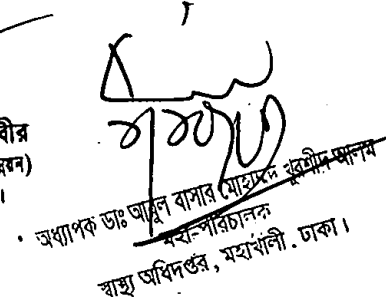 বীর
অধ্যাপক ডাঃ আবুল বাসার মোহাম্মদ খুরশীদ আলম
মহাপরিচালক
স্বাস্থ্য অধিদপ্তর, মহাখালী, ঢাকা।